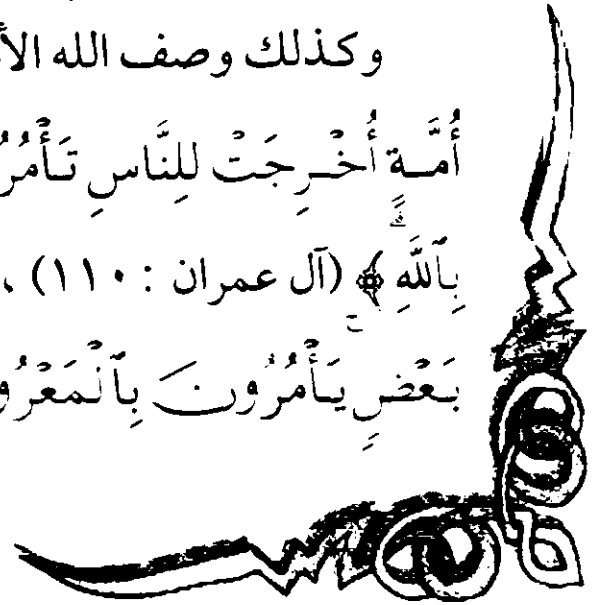 وكذلك وصف الله
أُمَّةٍ أُخْرِجَتْ لِلنَّاسِ تَأْمُرُ
بِٱللَّهِ ﴾ (آل عمران : ١١٠) ،
بَعْضٍ يَأْمُرُونَ بِٱلْمَعْرُو